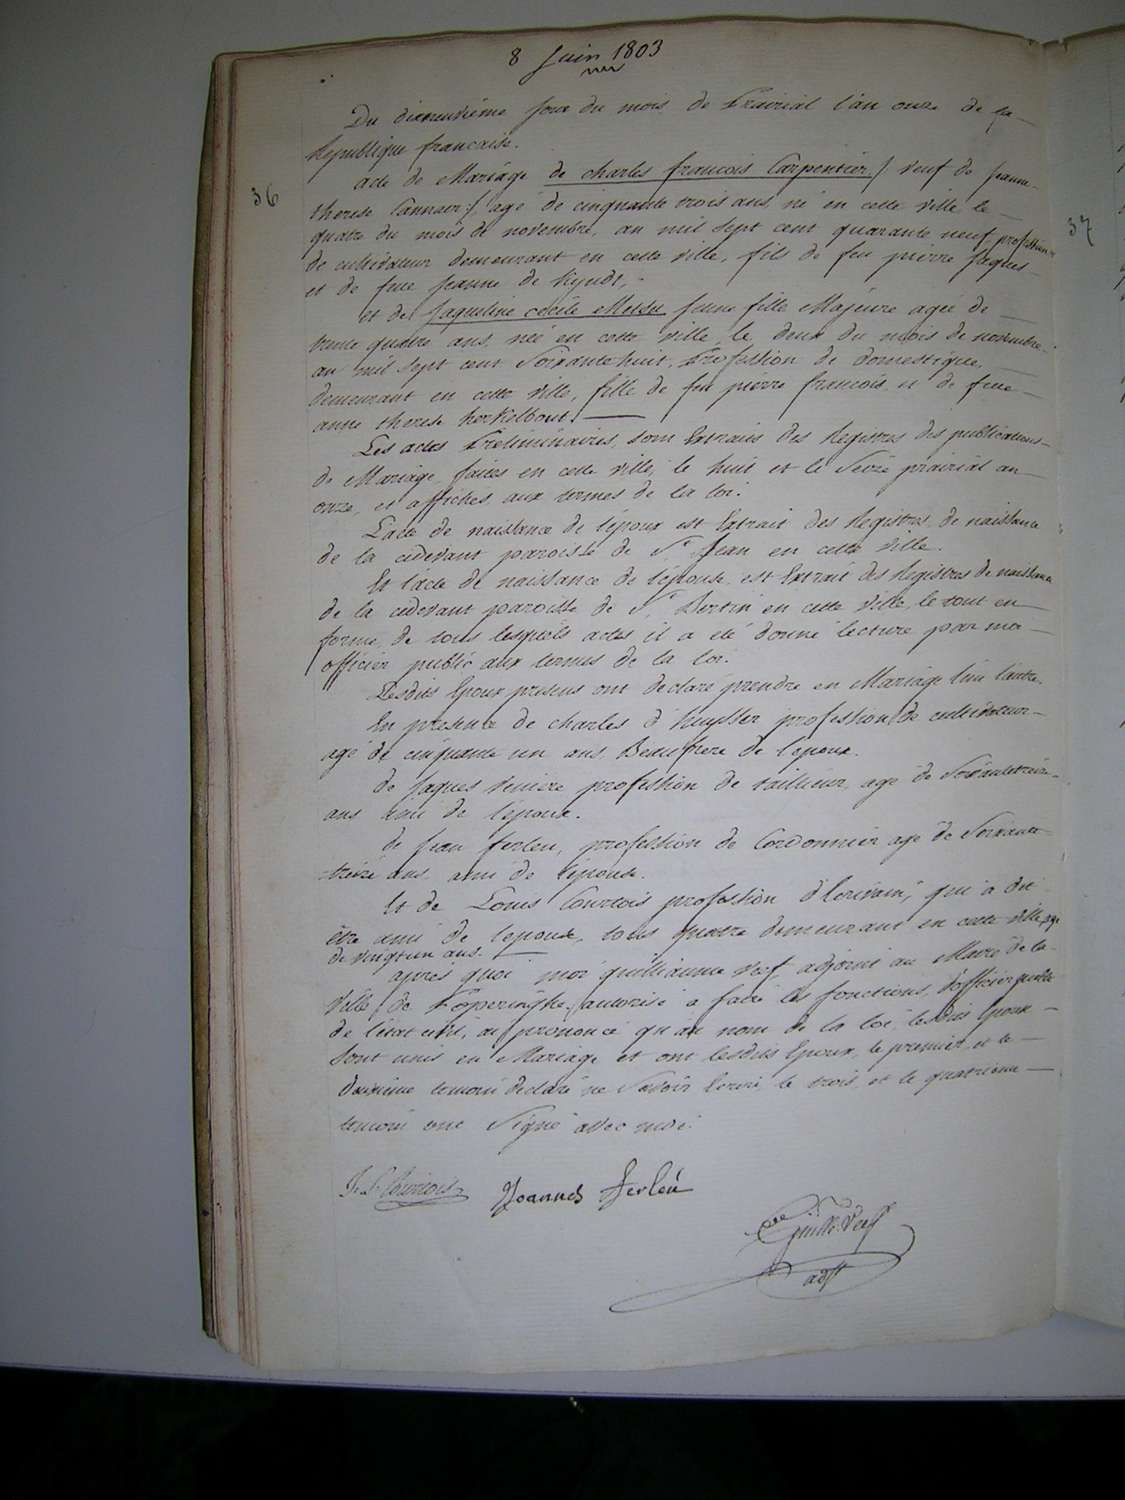 8 Juin 1803
Du dixneuvième Jour du mois de Prairial l'an onze de la
Republique francaise.
36
acte de Mariage de charles francois Carpentier / veuf de Jeanne
therese Cannaer / agé de cinquante trois ans, né en cette ville le
quatre du mois de novembre, an mil sept cent quarante neuf, profession
de cultivateur demeurant en cette ville, fils de feu pierre Jaques
et de feue Jeanne de Kyndt,
et de Jaqueline cecile Messu Jeune fille Majeure agée de
trente quatre ans, née en cette ville, le deux du mois de novembre
an mil sept cent Soixante huit, Profession de domestique,
demeurant en cette ville, fille de feu pierre francois et de feue
anne therese Kerkelbout.
Les actes Preliminaires, sont Extraits des Registres des publications
de Mariage, faites en cette ville, le huit et le Seize prairial an
onze, et affiches aux termes de la loi.
L'acte de naissance de l'époux est Extrait des Registres de naissance
de la cidevant paroisse de St. Jean en cette ville.
Et l'acte de naissance de l'épouse est Extrait des Registres de naissance
de la cidevant paroisse de St. Bertin en cette ville, le tout en
forme, de tous lesquels actes il a été donné lecture par moi
officier public aux termes de la loi.
Lesdits Epoux presens ont declaré prendre en Mariage l'un l'autre.
En presence de charles d'huysser profession de cultivateur
agé de cinquante un ans, Beaufrere de l'epoux.
de Jaques veniere profession de tailleur, agé de Soixantetreize
ans ami de l'époux.
de Jean ferleu, profession de Cordonnier agé de Soixante
treize ans ami de l'épouse.
Et de Louis Courtois profession d'Ecrivain, qui a dit
être ami de l'epouse, tous quatre demeurant en cette ville, agé
de vingtun ans.
après quoi moi guilliaume Verf adjoint au Maire de la
Ville de Poperinghe, autorisé a faire les fonctions d'officier public
de l'état civil, ai prononcé qu'au nom de la loi, lesdits Epoux
sont unis en Mariage et ont lesdits Epoux, le premier et le
deuxième temoin declaré ne Savoir Ecrire, le trois et le quatrieme
temoin ont Signé avec moi.
J. L. Courtois Joannes ferleu
Guille. Verf
adjt
37